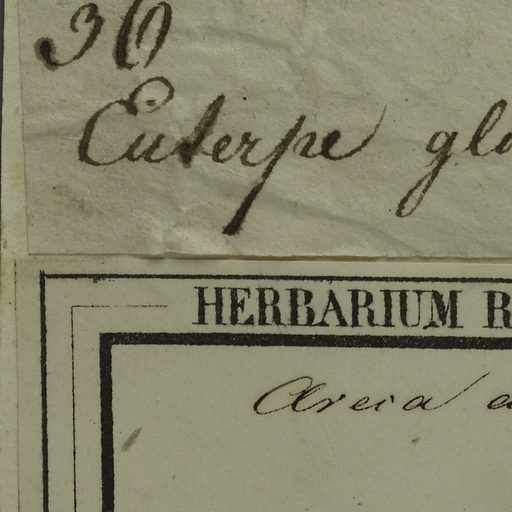 30
Euterpe glo
HERBARIUM R
Areca a